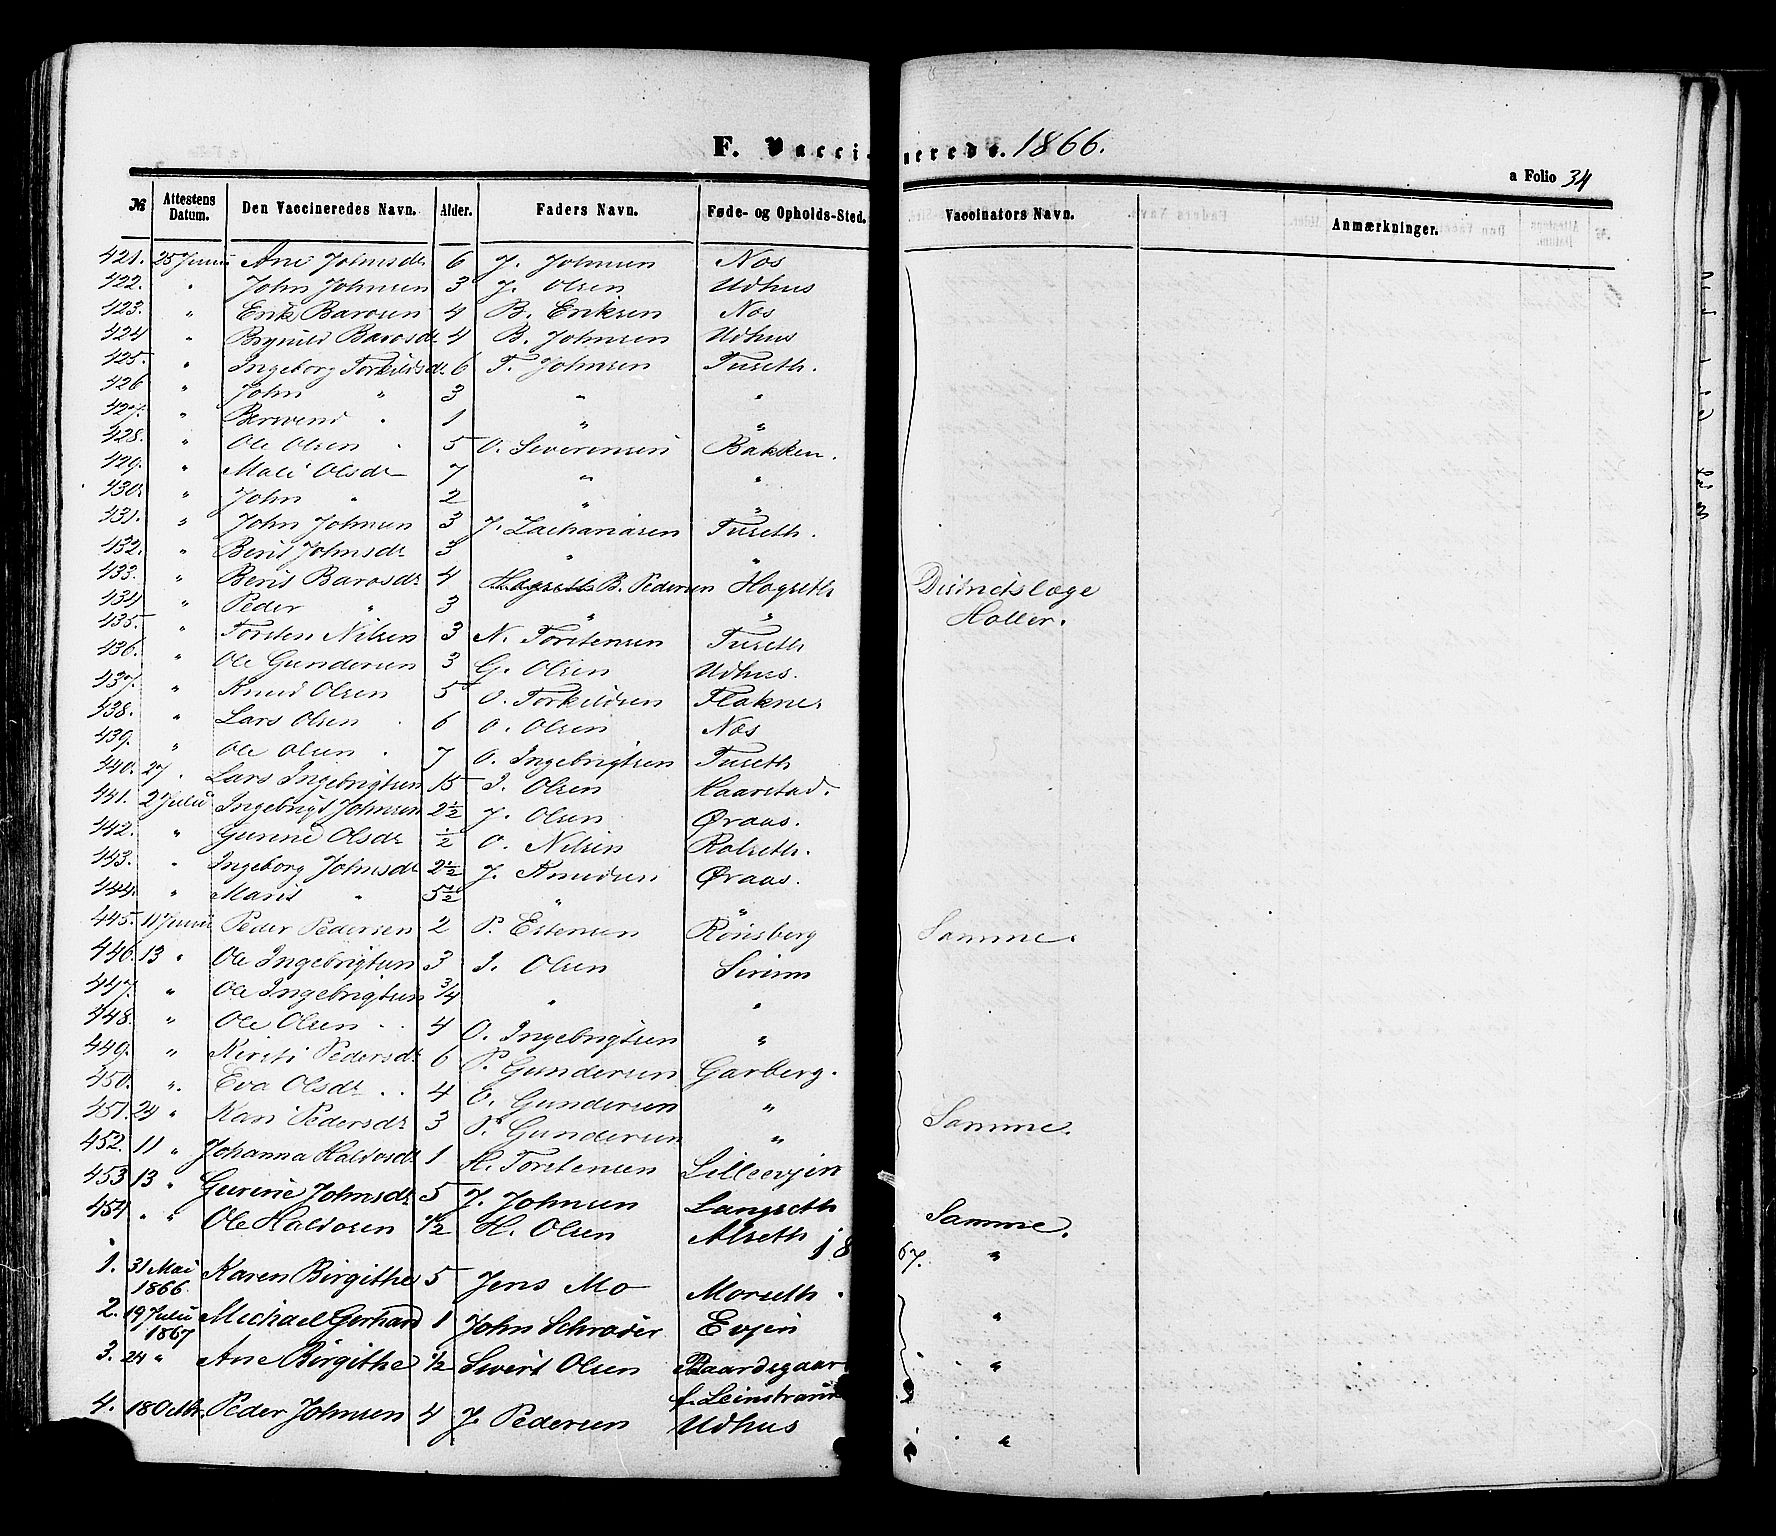 F. Vaccinerede. 1866.
a Folio 34
№ Attestens Datum. Den Vaccineredes Navn. Alder. Faders Navn. Føde- og Opholds-Sted. Vaccinators Navn. Anmærkninger.
421. 25 Junii Ane Johnsdr 6 J. Johnsen Nos
422. " John Johnsen 3 J. Olsen Udhus
423. " Erik Barosen 4 B. Eriksen Nos
424 " Brynild Barosdr 4 B. Johnsen Udhus
425. " Ingeborg Torkildsdr 6 T. Johnsen Tuseth.
426 " John " 3 " "
427. " Berwend " 1 " "
428. " Ole Olsen . 5 O. Severensen Bakken.
429. " Mali Olsdr 7 " "
430. " John " 2 " "
431. " John Johnsen 3 J. Zachariasen Tuseth.
432. " Berit Johnsdr 3 " "
433. " Berit Barosdr 4 B. Pedersen Hogseth Districtslæge
434 " Peder " 3 " " Holler.
435. " Torsten Nilsen 3 N. Torstensen Tuseth
436. " Ole Gundersen 3 G. Olsen Udhus.
437. " Knud Olsen 5 O. Torkildsen Flakne.
438. " Lars Olsen . 6 O. Olsen Nos
439. " Ole Olsen . 7 O. Ingebrigtsen Tuseth
440. 27 . Lars Ingebrigtsen 15 I. Olsen Haarstad.
441. 2 Julii Ingebrigt Johnsen 2½ J. Olsen Øraas.
442. " Gurine Olsdr ½ O. Nilsen Rolseth.
443. " Ingeborg Johnsdr 2½ J. Knudsen Øraas.
444. " Marit " 5½ " "
445. 11 Junii Peder Pedersen 2 P. Estensen Rønsberg Samme.
446. 13 " Ole Ingebrigtsen 3 I. Olsen Sirum
447. " Ole Ingebrigtsen 3/4 " "
448. " Ole Olsen . . 4 O. Ingebrigtsen "
449. " Kirsti Pedersdr 6 P. Gundersen Garberg.
450. " Eva Olsdr . . 4 O. Gundersen "
451. 24 " Kari Pedersdr 3 P. Gundersen " Samme.
452. 11 " Johanna Haldosdr 1 H. Torstensen Lilleevjen
453 13 " Gurine Johnsdr 5 J. Johnsen Langseth
454 " " Ole Haldosen ½ H. Olsen Alseth Samme.
1867.
1. 31 Mai 1866 Karen Birgithe 5 Jens Mo Morseth. "
2. 19 Julii 1867 Michael Gerhard 1 John Schrøder Evjen "
3. 24 " Ane Birgithe ½ Sivert Olsen Baardsgaar "
f. Leinstrand
4. 18 Octbr. Peder Johnsen 4 J. Pedersen Udhus "